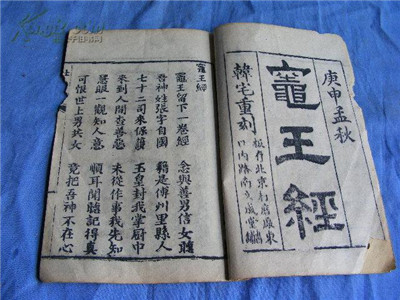 庚申孟秋
竈王經
韓宅重刻
板存北京打磨廠東
口內路南文成堂鋪
竈王經
竈王留下一卷經 念與善男信女聽
吾神姓張字自國 籍是傅州里縣人
七十二司來保護 玉皇封我掌厨中
來到人間查善惡 未從作事我先知
慧眼一觀知人意 順耳聞聽記得真
可恨世上男共女 竟把吾神不在心